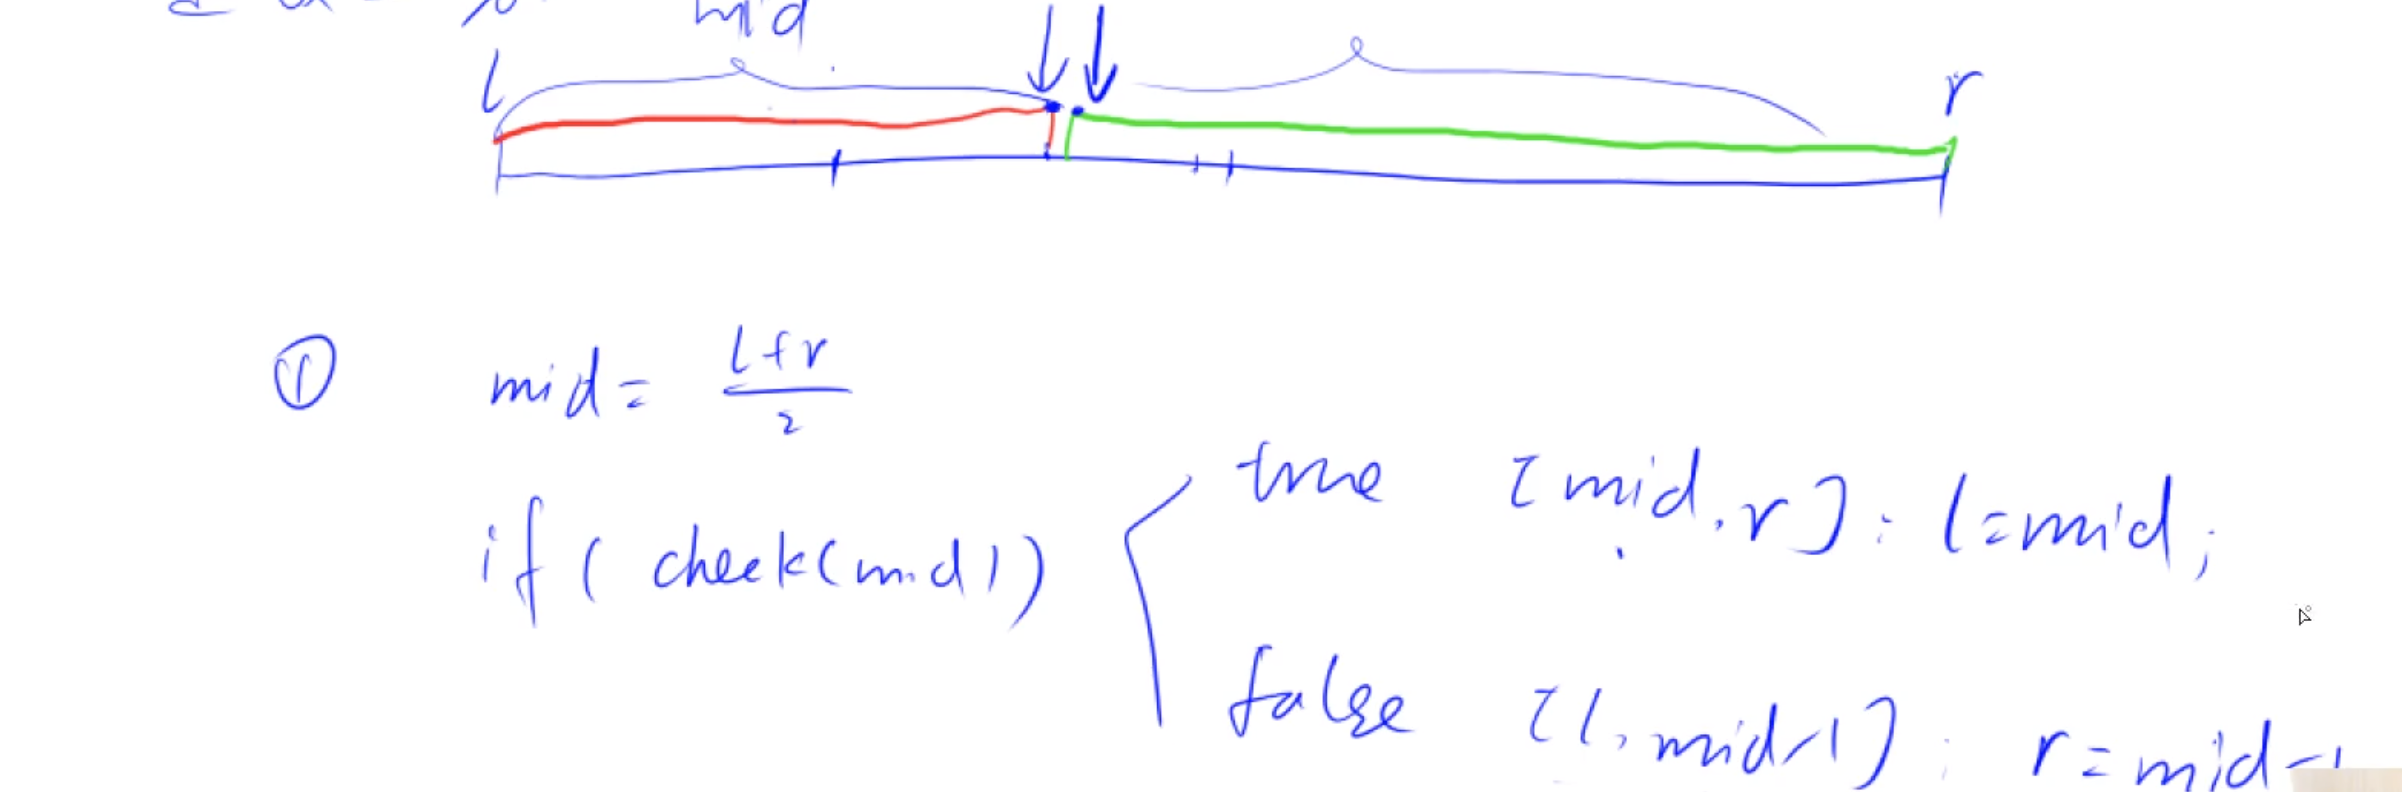 mid
l r
① mid = l+r / 2
if ( check(mid) ) true [mid, r] : l=mid;
false [l, mid-1] : r=mid-1